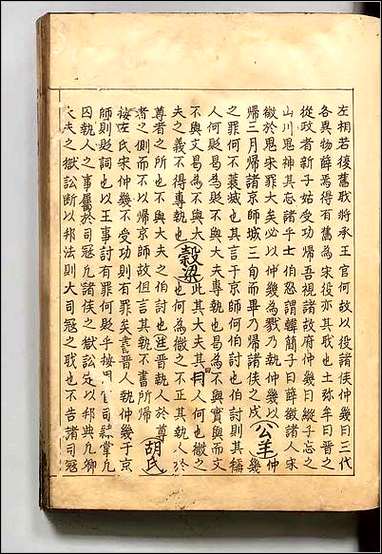 左相若復舊職將承王官何故以役諸侯仲幾曰三代
各異物薛焉得有舊為宋役亦其職也士彌牟曰晉之
從政者新子姑受功歸吾視諸故府仲幾曰縱子忘之
山川鬼神其忘諸乎士伯怒謂韓簡子曰薛徵諸人宋
徵於鬼宋罪大矣必以仲幾為戮乃執仲幾以
歸三月歸諸京師城三旬而畢乃歸諸侯之戍
公羊
仲幾
之罪何不蓑城也其言于京師何伯討也伯討則其稱
人何貶曷為貶不與大夫專執也曷為不與實與而文
不與文曷為不與大
夫之義不得專執也
穀梁
此其大夫其曰人何也微之
也何為微之不正其執人於
尊者之所也不與大夫之伯討也註晉執人於尊
者之側而不以歸京師故但言其執不書所歸
胡氏
按左氏宋仲幾不受功則有罪矣書晉人執仲幾于京
師則貶詞也以王事討有罪何貶乎按周官司隸掌凡
囚執人之事屬於司寇凡諸侯之獄訟定以邦典凡卿
大夫之獄訟斷以邦法則大司寇之職也不告諸司寇